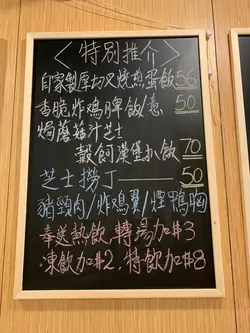 〈特別推介〉
自家製厚切叉燒煎蛋飯56
香脆炸鸡脾飯/意 50
焗蘑菇汁芝士
穀飼漢堡扒飯 70
芝士撈丁—50
豬頸肉/炸鳮翼/煙鴨胸
奉送熱飲,轉場加#3
凍飲加#2,特飲加#8